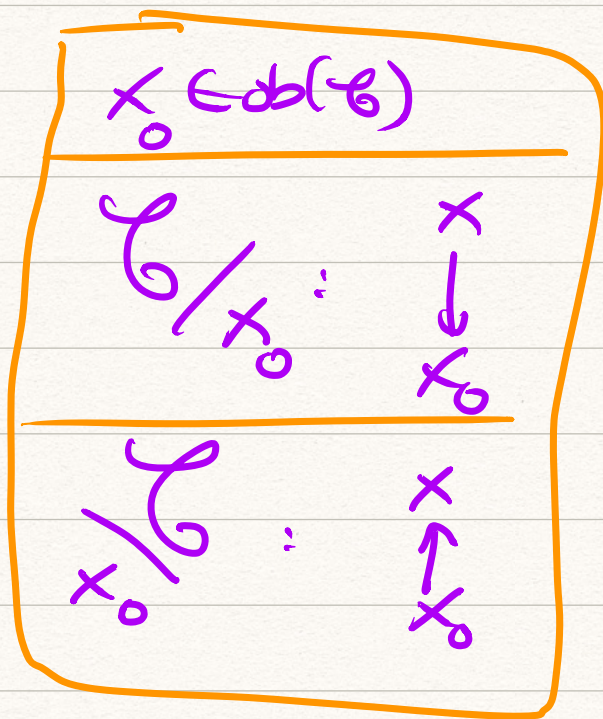 X₀ ∈ ob(𝒞)
𝒞/X₀ : X ↓ X₀
X₀\𝒞 : X ↑ X₀